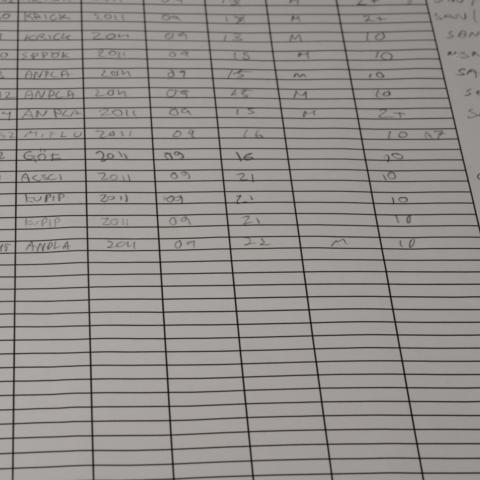 KRICK 2011 09 13 M 2+ SAN
KRICK 2011 09 13 M 10 SAN
SPPOK 2011 09 15 M 10
ANPLA 2011 09 15 M 10 SA
ANPLA 2011 09 15 M 10
ANPLA 2011 09 15 M 2+
2011 09 16 10
GÖK 2011 09 16 10
ACSCI 2011 09 21 10
2011 09 21 10
2011 09 21 10
ANPLA 2011 09 22 M 10